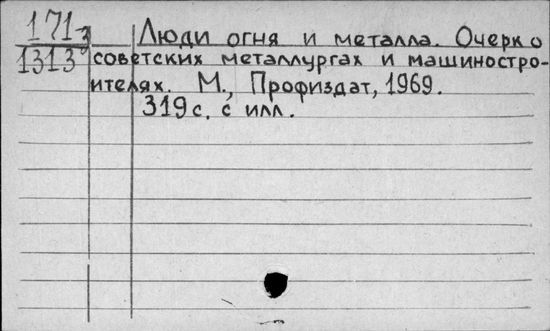 171з Люди огня и металла. Очерк о
1313 советских металлургах и машиностро-
ителях. М., Профиздат, 1969.
319 с. с илл.